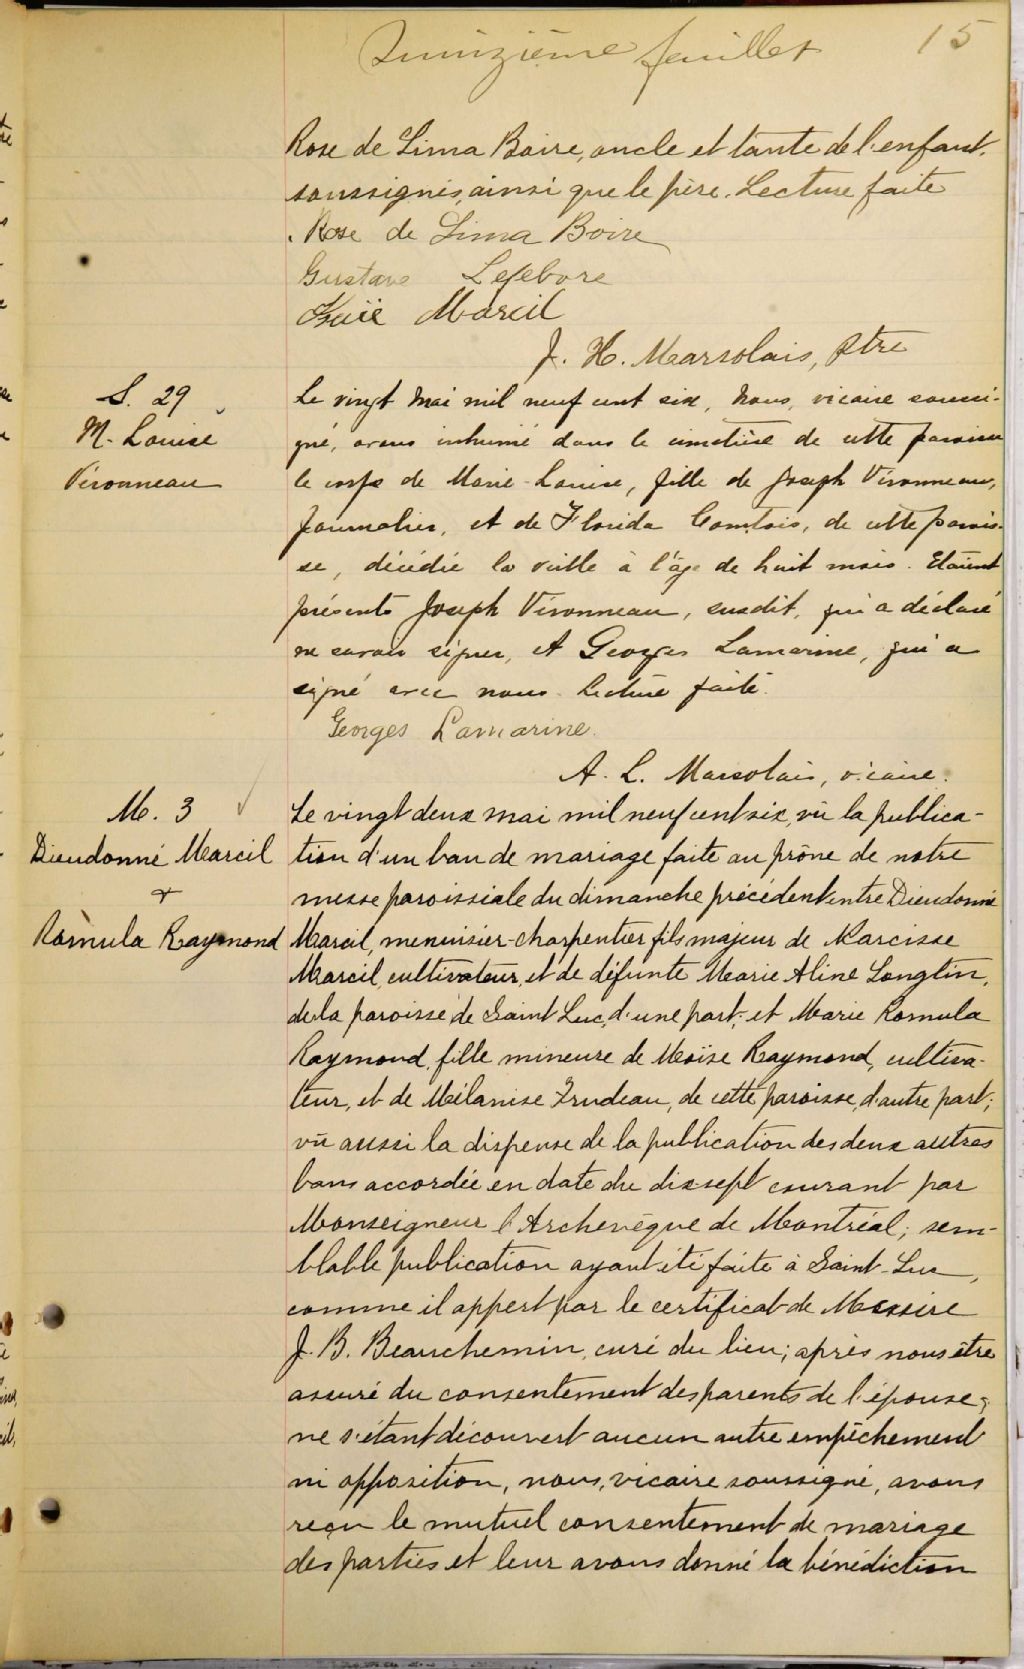 Quinzième feuillet 15
Rose de Lima Boire, oncle et tante de l'enfant,
soussignés, ainsi que le père. Lecture faite
Rose de Lima Boire
Gustave Lefebvre
Marcil
J. H. Marsolais, Ptre
S. 29
M. Louise
Véronneau
Le vingt mai mil neuf cent six, nous, vicaire soussi-
gné, avons inhumé dans le cimetière de cette paroisse
le corps de Marie-Louise, fille de Joseph Véronneau,
journalier, et de Florida Comtois, de cette parois-
se, décédée la veille à l'âge de huit mois. Etaient
présents Joseph Véronneau, susdit, qui a déclaré
ne savoir signer, et Georges Lamarine, qui a
signé avec nous. Lecture faite.
Georges Lamarine.
A. L. Marsolais, vicaire.
M. 3
Dieudonné Marcil
+
Romula Raymond
Le vingt deux mai mil neuf cent six, vû la publica-
tion d'un ban de mariage faite au prône de notre
messe paroissiale du dimanche précédent entre Dieudonné
Marcil, menuisier-charpentier fils majeur de Narcisse
Marcil, cultivateur, et de défunte Marie Aline Longtin,
de la paroisse de Saint Luc, d'une part; et Marie Romula
Raymond, fille mineure de Moïse Raymond, cultiva-
teur, et de Mélanise Trudeau, de cette paroisse, d'autre part;
vû aussi la dispense de la publication des deux autres
bans accordée en date du dix sept courant par
Monseigneur l'Archevêque de Montréal; sem-
blable publication ayant été faite à Saint-Luc,
comme il appert par le certificat de Messire
J. B. Beauchemin, curé du lieu; après nous être
assuré du consentement des parents de l'épouse;
ne s'étant découvert aucun autre empêchement
ni opposition, nous, vicaire soussigné, avons
reçu le mutuel consentement de mariage
des parties et leur avons donné la bénédiction